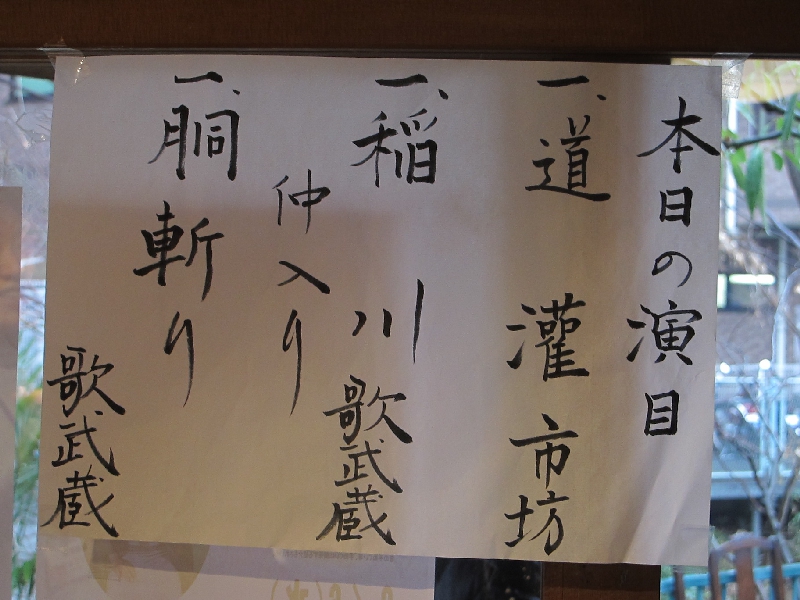 本日の演目
一、道灌 市坊
一、稲川 歌武蔵
仲入り
一、胴斬り
歌武蔵